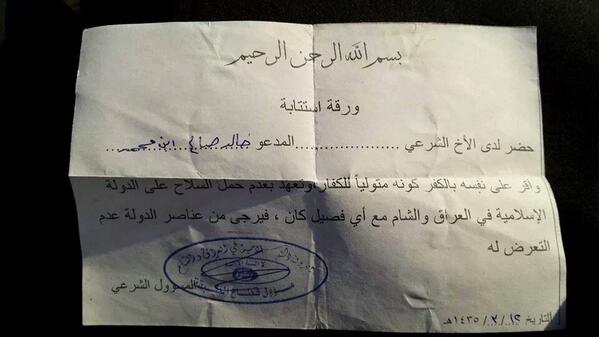 بسم الله الرحمن الرحيم
ورقة استتابة
حضر لدى الأخ الشرعي .................... المدعو خالد صباح ابن محمد
واقر على نفسه بالكفر كونه متولياً للكفار وتعهد بعدم حمل السلاح على الدولة
الإسلامية في العراق والشام مع أي فصيل كان ، فيرجى من عناصر الدولة عدم
التعرض له
المسؤول الشرعي
التاريخ ١٢/ ٢ / ١٤٣٥هـ